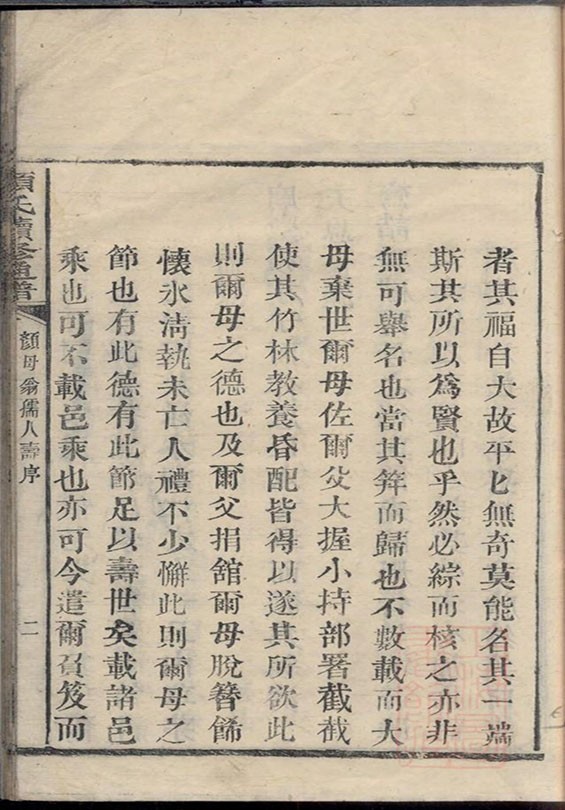 者其福自大故平匕無奇莫能名其一端
斯其所以爲賢也乎然必綜而核之亦非
無可舉名也當其笄而歸也不數載而大
母棄世爾母佐爾父大握小持部署截截
使其竹林教養昏配皆得以遂其所欲此
則爾母之德也及爾父捐舘爾母脫簪餙
懷氷淸執未亡人禮不少懈此則爾母之
節也有此德有此節足以壽世矣載諸邑
乘也可不載邑乘也亦可今遣爾負笈而
顏氏續修通譜
顏母翁孺人壽序
二